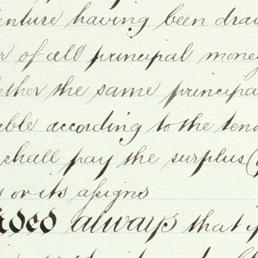 enture having been dra
r of all principal mone
ether the same principa
able according to the ten
shall pay the surplus (
s or its assigns
ided always that i